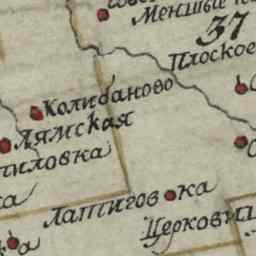 Меншые
37
Плоское
Колибаново
Лямская
пиловка
ка
Латиговка
Церковищ
ка